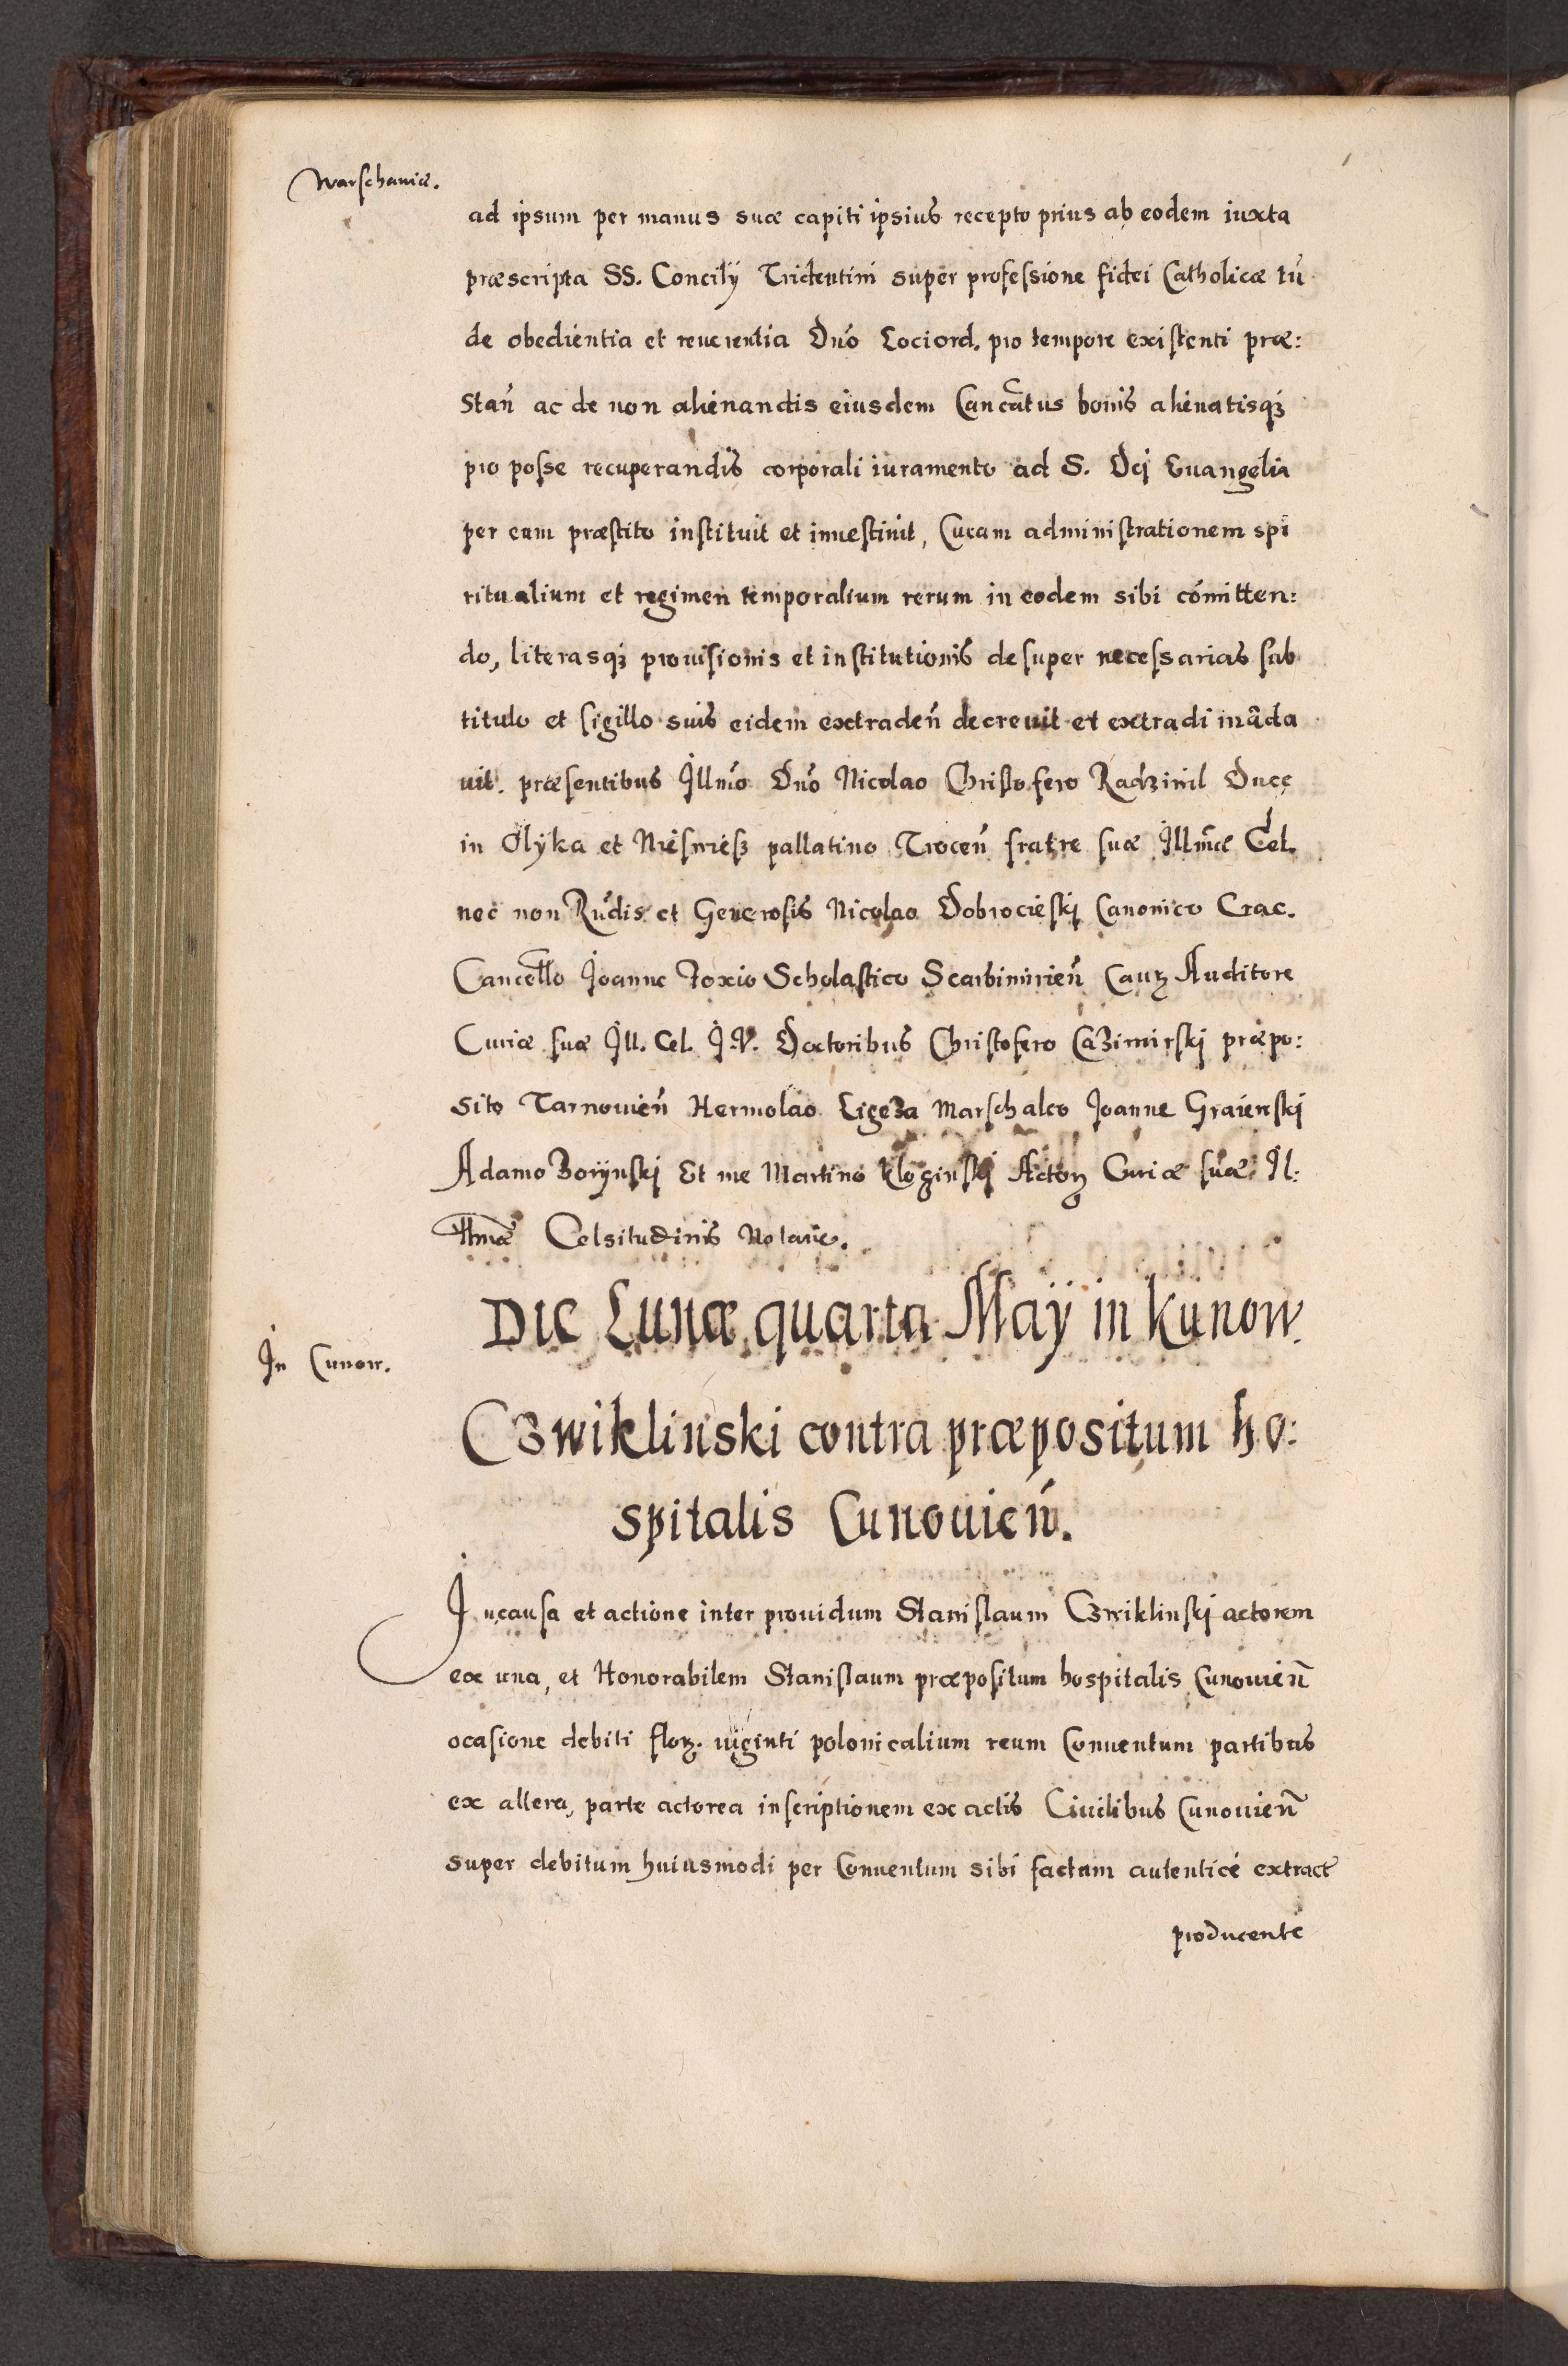 Warschauiæ.
ad ipsum per manus suæ capiti ipsius recepto prius ab eodem iuxta
præscripta SS. Concilij Tridentini super professione fidei Catholicæ tū
de obedientia et reuerentia Dnō Lociord. pro tempore existenti præ:
stan̄ ac de non alienandis eiusdem Cancātus bonis alienatisqȝ
pro posse recuperandis corporali iuramento ad S. Dei Euangelia
per eum præstito instituit et inuestiuit, Curam administrationem spi
ritualium et regimen temporalium rerum in eodem sibi cōmitten:
do, literasqȝ prouisionis et institutionis desuper necessarias sub
titulo et sigillo suis eidem extraden̄ decreuit et extradi māda
uit. præsentibus Illmō Dnō Nicolao Christofero Radziwil Duce
in Olÿka et Nieswiesz pallatino Trocen̄ fratre suæ Illmæ Cel.
nec non Rūdis et Generosis Nicolao Dobrocieskj Canonico Crac.
Cancello Joanne Foxio Scholastico Scarbimirien̄ Cauȝ Auditore
Curiæ suæ Ill. Cel. J. V. Doctoribus Christofero Cazimirskj præpo:
sito Tarnouien̄ Hermolao Ligeza Marschalco Joanne Graienskj
Adamo Borÿnskj Et me Martino Kloginskj Actoȝ Curiæ suæ Il:
llmæ Celsitudinis Notario.
Die Lunæ quarta Maÿ in Kunow.
In Cunow.
Czwiklinski contra præpositum ho:
spitalis Cunouien̄.
In causa et actione inter prouidum Stanislaum Czwiklinskj actorem
ex una, et Honorabilem Stanislaum præpositum hospitalis Cunouien̄
ocasione debiti floȝ. uiginti polonicalium reum Conuentum partibus
ex altera, parte actorea inscriptionem ex actis Ciuilibus Cunouien̄
super debitum huiusmodi per Conuentum sibi factam autenticé extract̄
producente